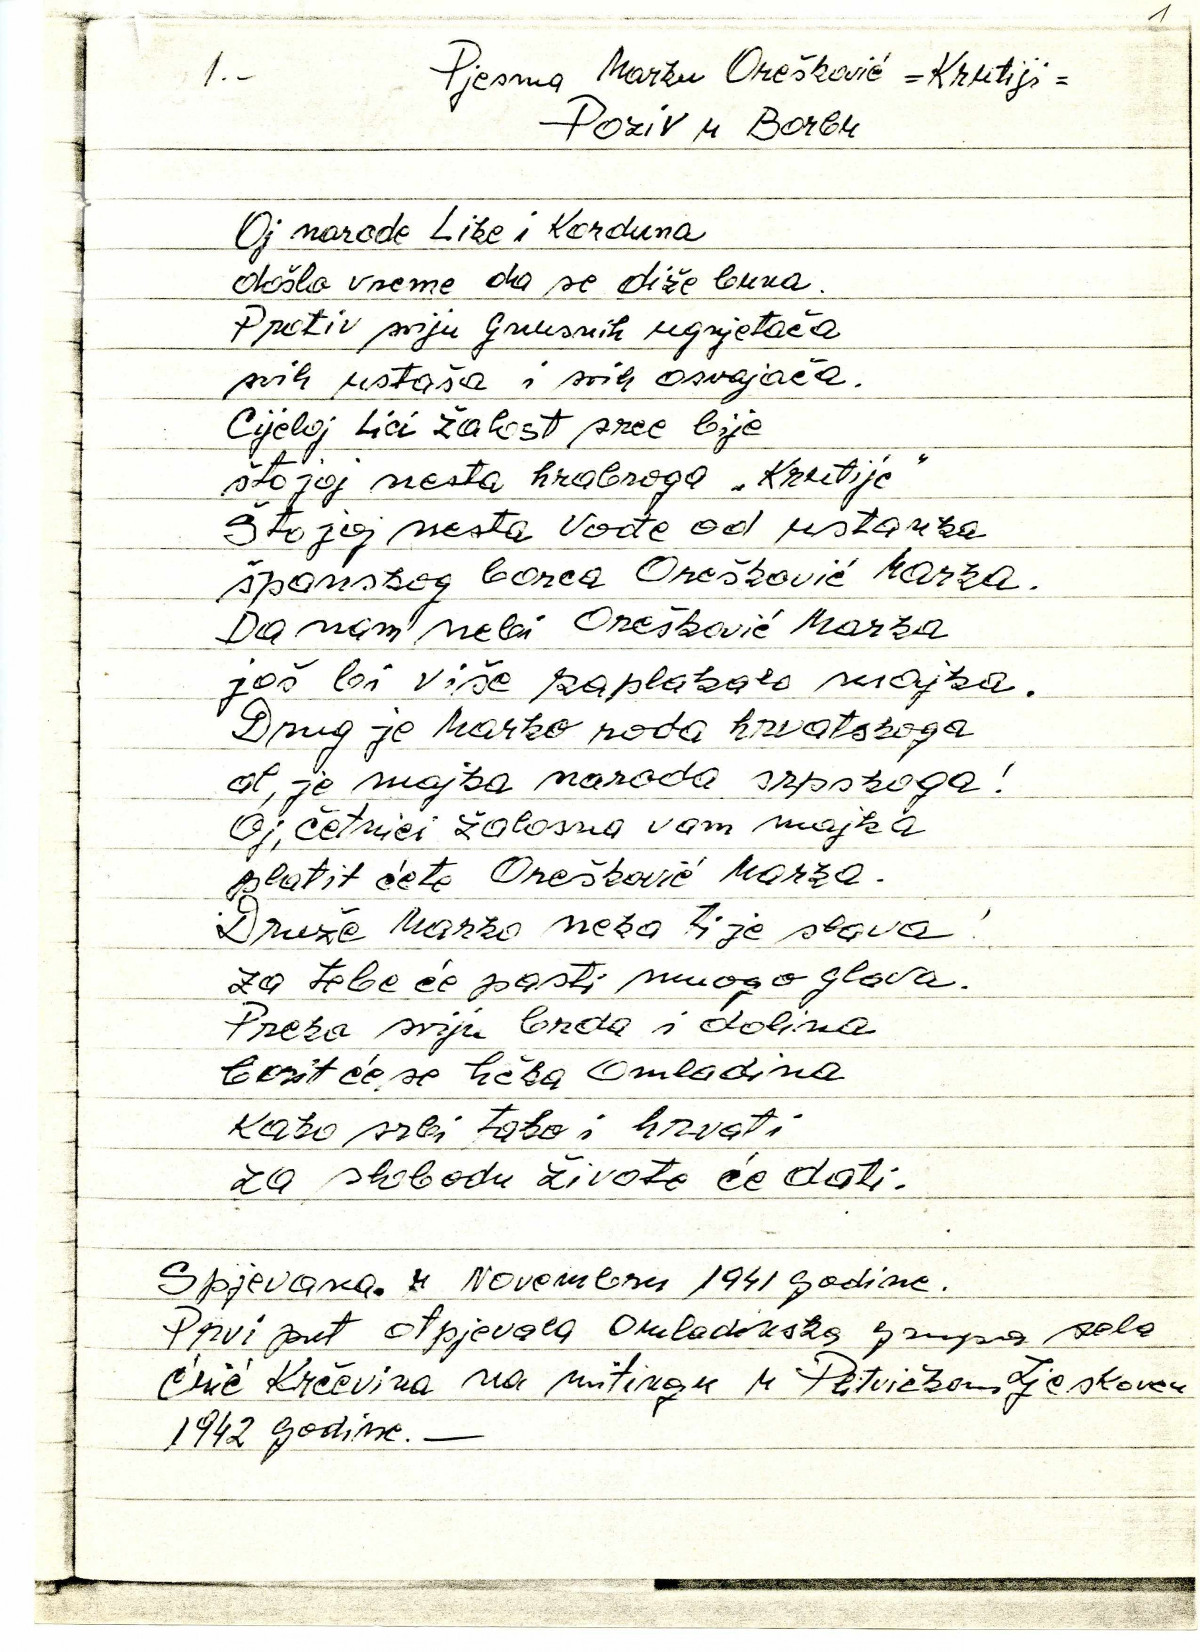 1
1.- Pjesma Marku Orešković =Krntiji=
Poziv u Borbu
Oj narode Like i Korduna
došlo vreme da se diže buna.
Protiv sviju gnusnih ugnjetača
svih ustaša i svih osvajača.
Cijeloj Lici žalost srce bije
što joj nesta hrabroga „Krntije“
Što joj nesta Vođe od ustanka
španskog borca Orešković Marka.
Da nam nebi Orešković Marka
još bi više zaplakalo majka.
Drug je Marko roda hrvatskoga
al, je majka naroda srpskoga!
Oj, četnici žalosna vam majka
platit ćete Orešković Marka.
Druže Marko neka ti je slava!
za tebe će pasti mnogo glava.
Preko sviju brda i dolina
borit će se lička Omladina
Kako srbi tako i hrvati
za slobodu živote će dati.
Spjevana. u Novembru 1941 godine.
Prvi put otpjevala Omladinska grupa sela
Ćuić Krčevina na mitingu u Plitvičkom Ljeskovcu
1942 godine. —